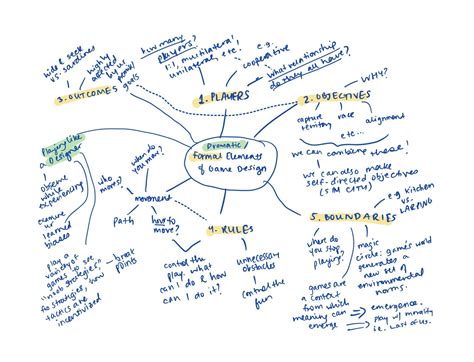 hide & seek
vs. sardines
highly
affected
by us
goals
3. OUTCOMES
how many
players?
1:1, multilateral
unilateral,
etc.
e.g.
cooperative
what relationship
do they all have?
1. PLAYERS
WHY?
2. OBJECTIVES
capture
territory
race
alignment
etc...
we can combine these!
we can also make
self-directed objectives
(SIM CITY)
Dramatic/
Formal Elements
of Game Design
Playing like
a
Designer
observe
while
experiencing
examine
ur
learned
biases
play a
variety of
games to see
tactics are
incentivized
break
points
when do
you move?
who
moves?
movement
path
how to
move?
4. RULES
control the
play. what
can I do & how
can I do it?
unnecessary
obstacles
control the
fun
5. BOUNDARIES
e.g. kitchen
vs.
LARPING
where do
you stop
playing?
magic
circle: games world
generates a
new set of
environmental
norms.
games are
a context
from which
meaning can
emerge
emergence.
play w/ morality
i.e. Last of Us.